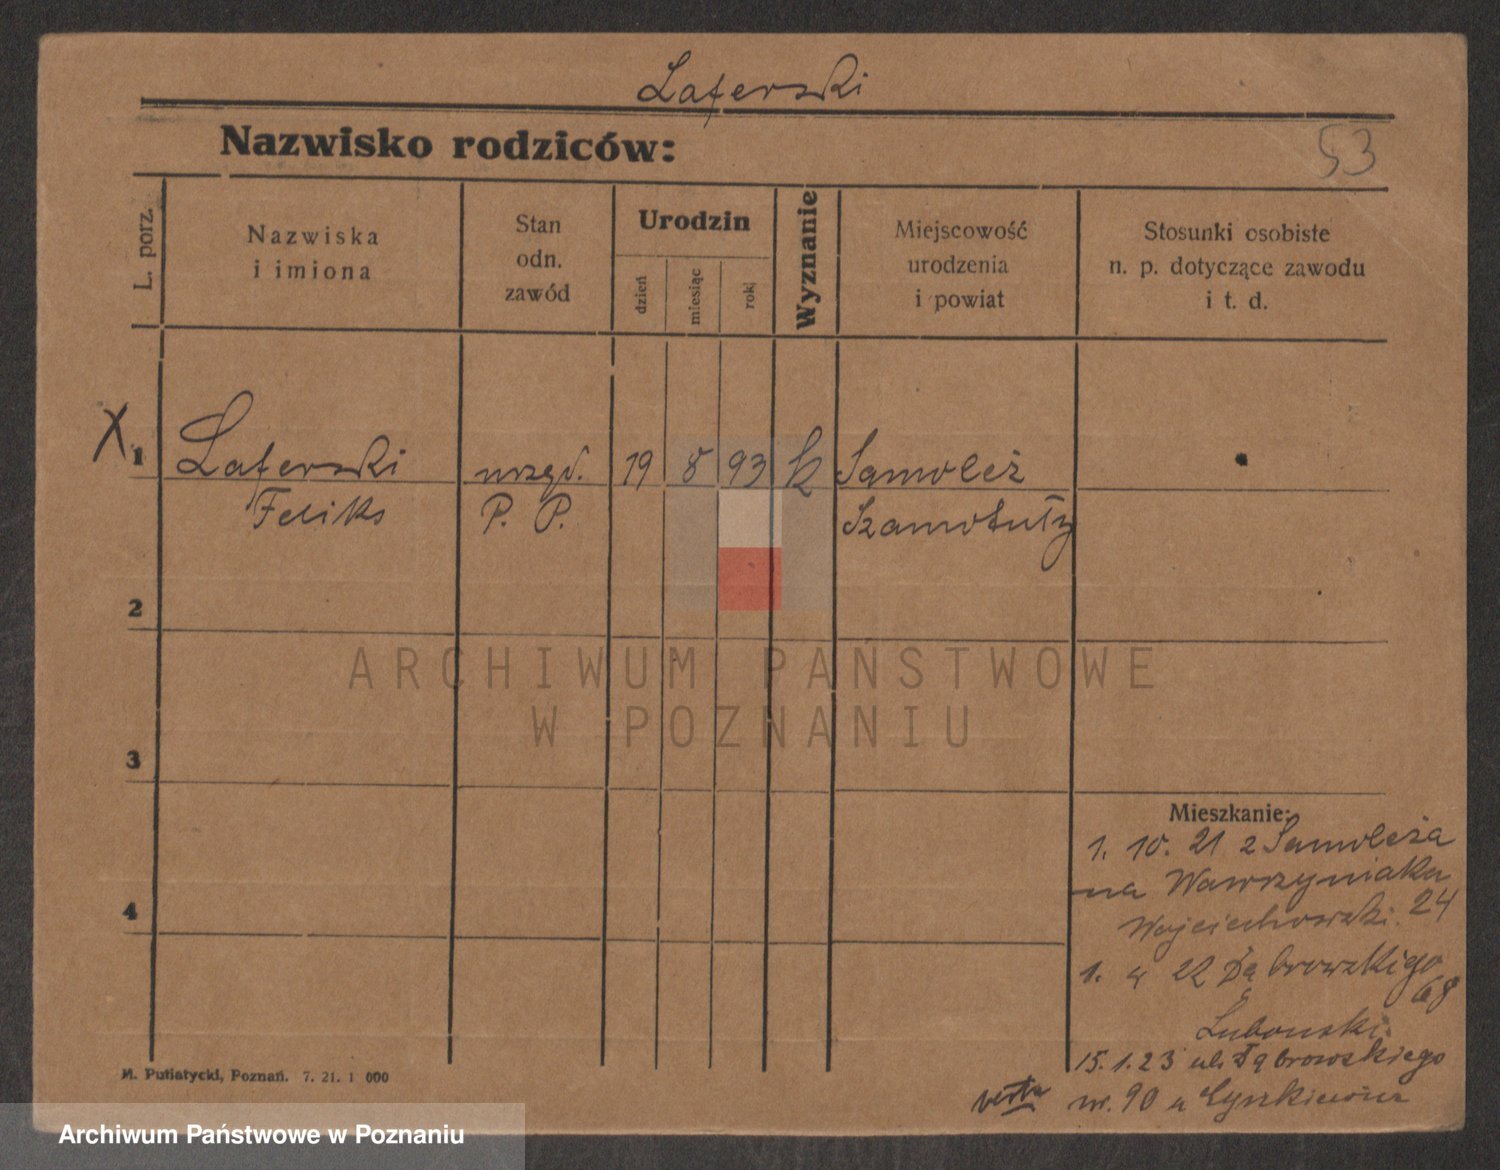 Laferski
Nazwisko rodziców:
53
L. porz.
Nazwiska
i imiona
Stan
odn.
zawód
Urodzin
dzień
miesiąc
rok
Wyznanie
Miejscowość
urodzenia
i powiat
Stosunki osobiste
n. p. dotyczące zawodu
i t. d.
X 1
Laferski
Feliks
urzęd.
P. P.
19 8 93 k
Samolęż
Szamotuły
2
3
4
ARCHIWUM PAŃSTWOWE
W POZNANIU
Mieszkanie:
1. 10. 21 z Samolęża
na Wawrzyniaka
Wojciechowski. 24
1. 4 22 Dąbrowskigo
68
15.1.23 ul. Dąbrowskiego
nr. 90 u
verte
M. Putiatycki, Poznań. 7. 21. 1 000
Archiwum Państwowe w Poznaniu